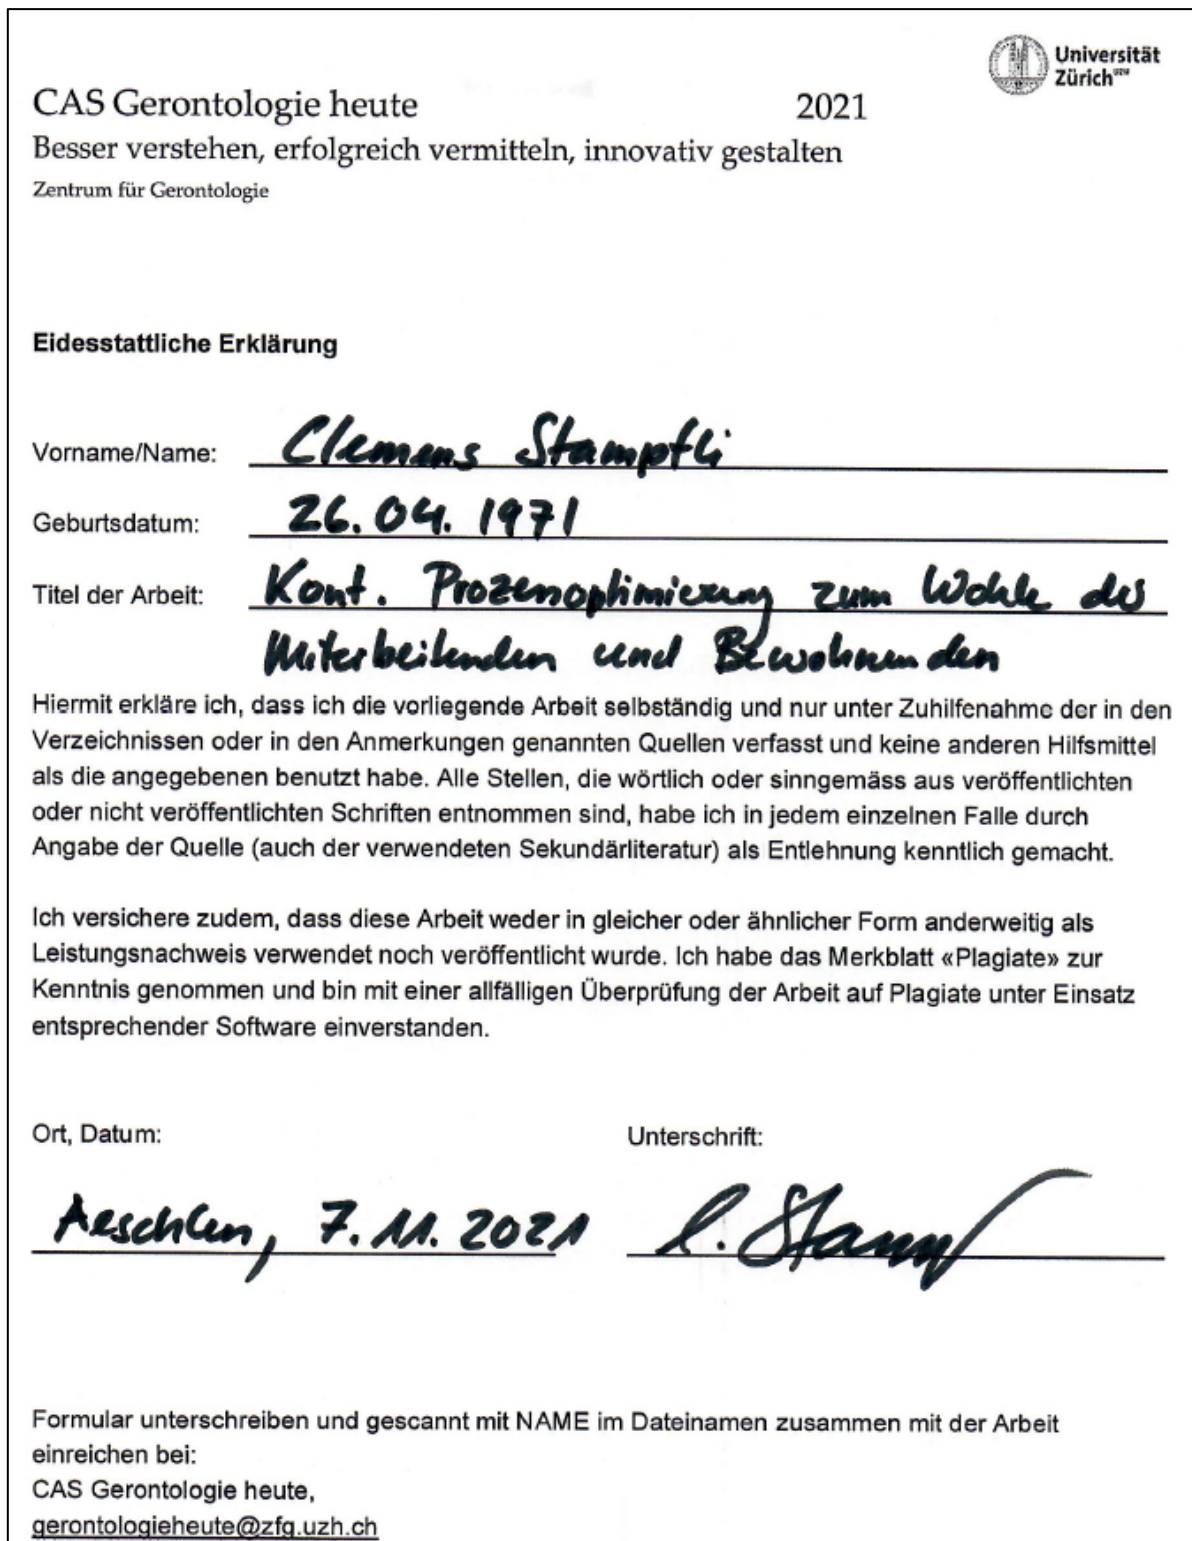 Universität
Zürich UZH
CAS Gerontologie heute 2021
Besser verstehen, erfolgreich vermitteln, innovativ gestalten
Zentrum für Gerontologie
Eidesstattliche Erklärung
Vorname/Name: Clemens Stampfli
Geburtsdatum: 26.04.1971
Titel der Arbeit: Kont. Prozenoptimierung zum Wohle des
Mitarbeitenden und Bewohnenden
Hiermit erkläre ich, dass ich die vorliegende Arbeit selbständig und nur unter Zuhilfenahme der in den
Verzeichnissen oder in den Anmerkungen genannten Quellen verfasst und keine anderen Hilfsmittel
als die angegebenen benutzt habe. Alle Stellen, die wörtlich oder sinngemäss aus veröffentlichten
oder nicht veröffentlichten Schriften entnommen sind, habe ich in jedem einzelnen Falle durch
Angabe der Quelle (auch der verwendeten Sekundärliteratur) als Entlehnung kenntlich gemacht.
Ich versichere zudem, dass diese Arbeit weder in gleicher oder ähnlicher Form anderweitig als
Leistungsnachweis verwendet noch veröffentlicht wurde. Ich habe das Merkblatt «Plagiate» zur
Kenntnis genommen und bin mit einer allfälligen Überprüfung der Arbeit auf Plagiate unter Einsatz
entsprechender Software einverstanden.
Ort, Datum: Unterschrift:
Aeschlen, 7.11.2021 C. Stampf
Formular unterschreiben und gescannt mit NAME im Dateinamen zusammen mit der Arbeit
einreichen bei:
CAS Gerontologie heute,
gerontologieheute@zfg.uzh.ch